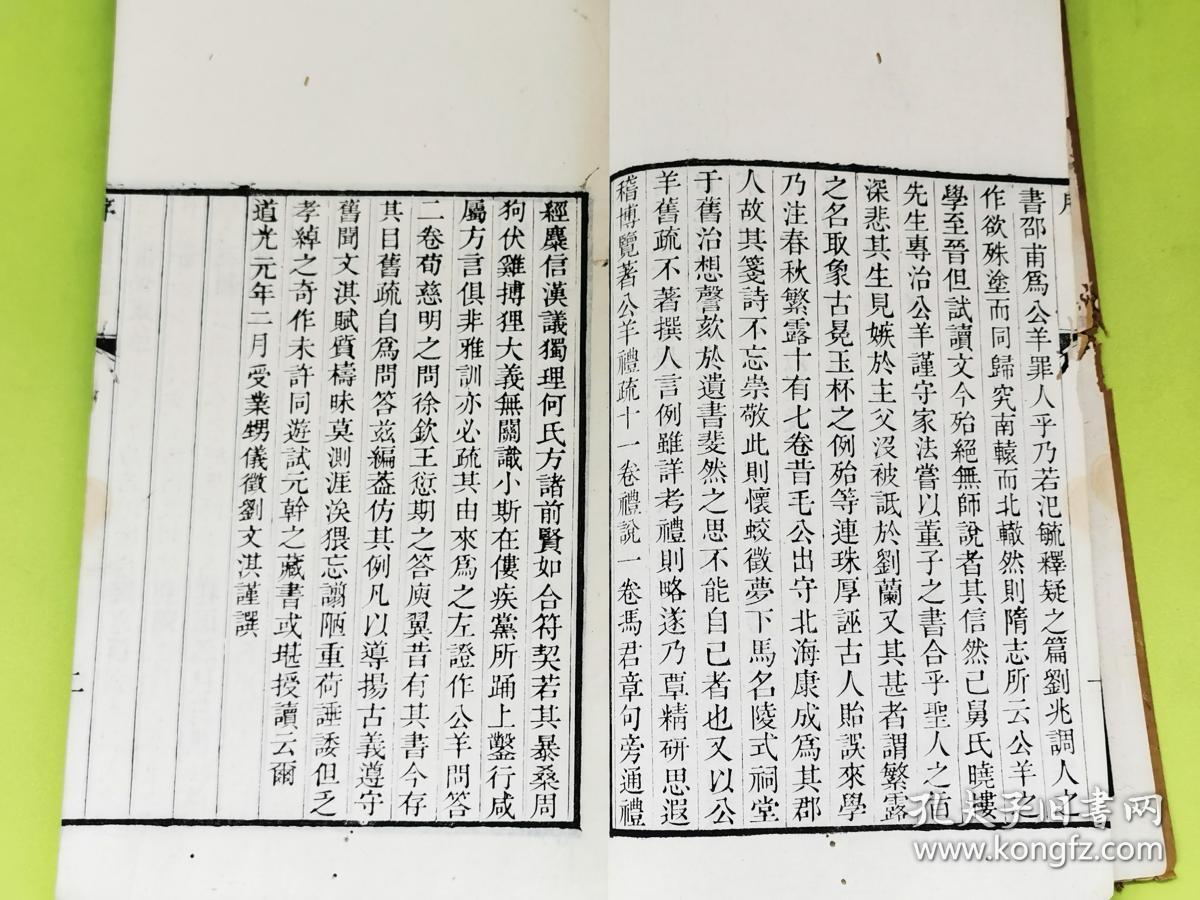 書邵甫爲公羊罪人乎乃若汜毓釋疑之篇劉兆調人之
作欲殊塗而同歸究南轅而北轍然則隋志所云公羊之
學至晉但試讀文今殆絕無師說者其信然已舅氏曉樓
先生專治公羊謹守家法嘗以董子之書合乎聖人之道
深悲其生見嫉於主父沒被詆於劉蘭又其甚者謂繁露
之名取象古冕玉杯之例殆等連珠厚誣古人貽誤來學
乃注春秋繁露十有七卷昔毛公出守北海康成爲其郡
人故其箋詩不忘崇敬此則懷蛟徵夢下馬名陵式祠堂
于舊治想謦欬於遺書斐然之思不能自已者也又以公
羊舊疏不著撰人言例雖詳考禮則略遂乃覃精研思遐
稽博覽著公羊禮疏十一卷禮說一卷馬君章句旁通禮
經麋信漢議獨理何氏方諸前賢如合符契若其暴桑周
狗伏雞搏狸大義無關識小斯在僂疾黨所踊上鑿行咸
屬方言俱非雅訓亦必疏其由來爲之左證作公羊問答
二卷荀慈明之問徐欽王愆期之答庾翼昔有其書今存
其目舊疏自爲問答兹編葢仿其例凡以導揚古義遵守
舊聞文淇賦質檮昧莫測涯涘猥忘謭陋重荷諈諉但乏
孝綽之奇作未許同遊試元幹之藏書或堪授讀云爾
道光元年二月受業甥儀徵劉文淇謹譔
序
二
孔夫子旧书网
www.kongfz.com